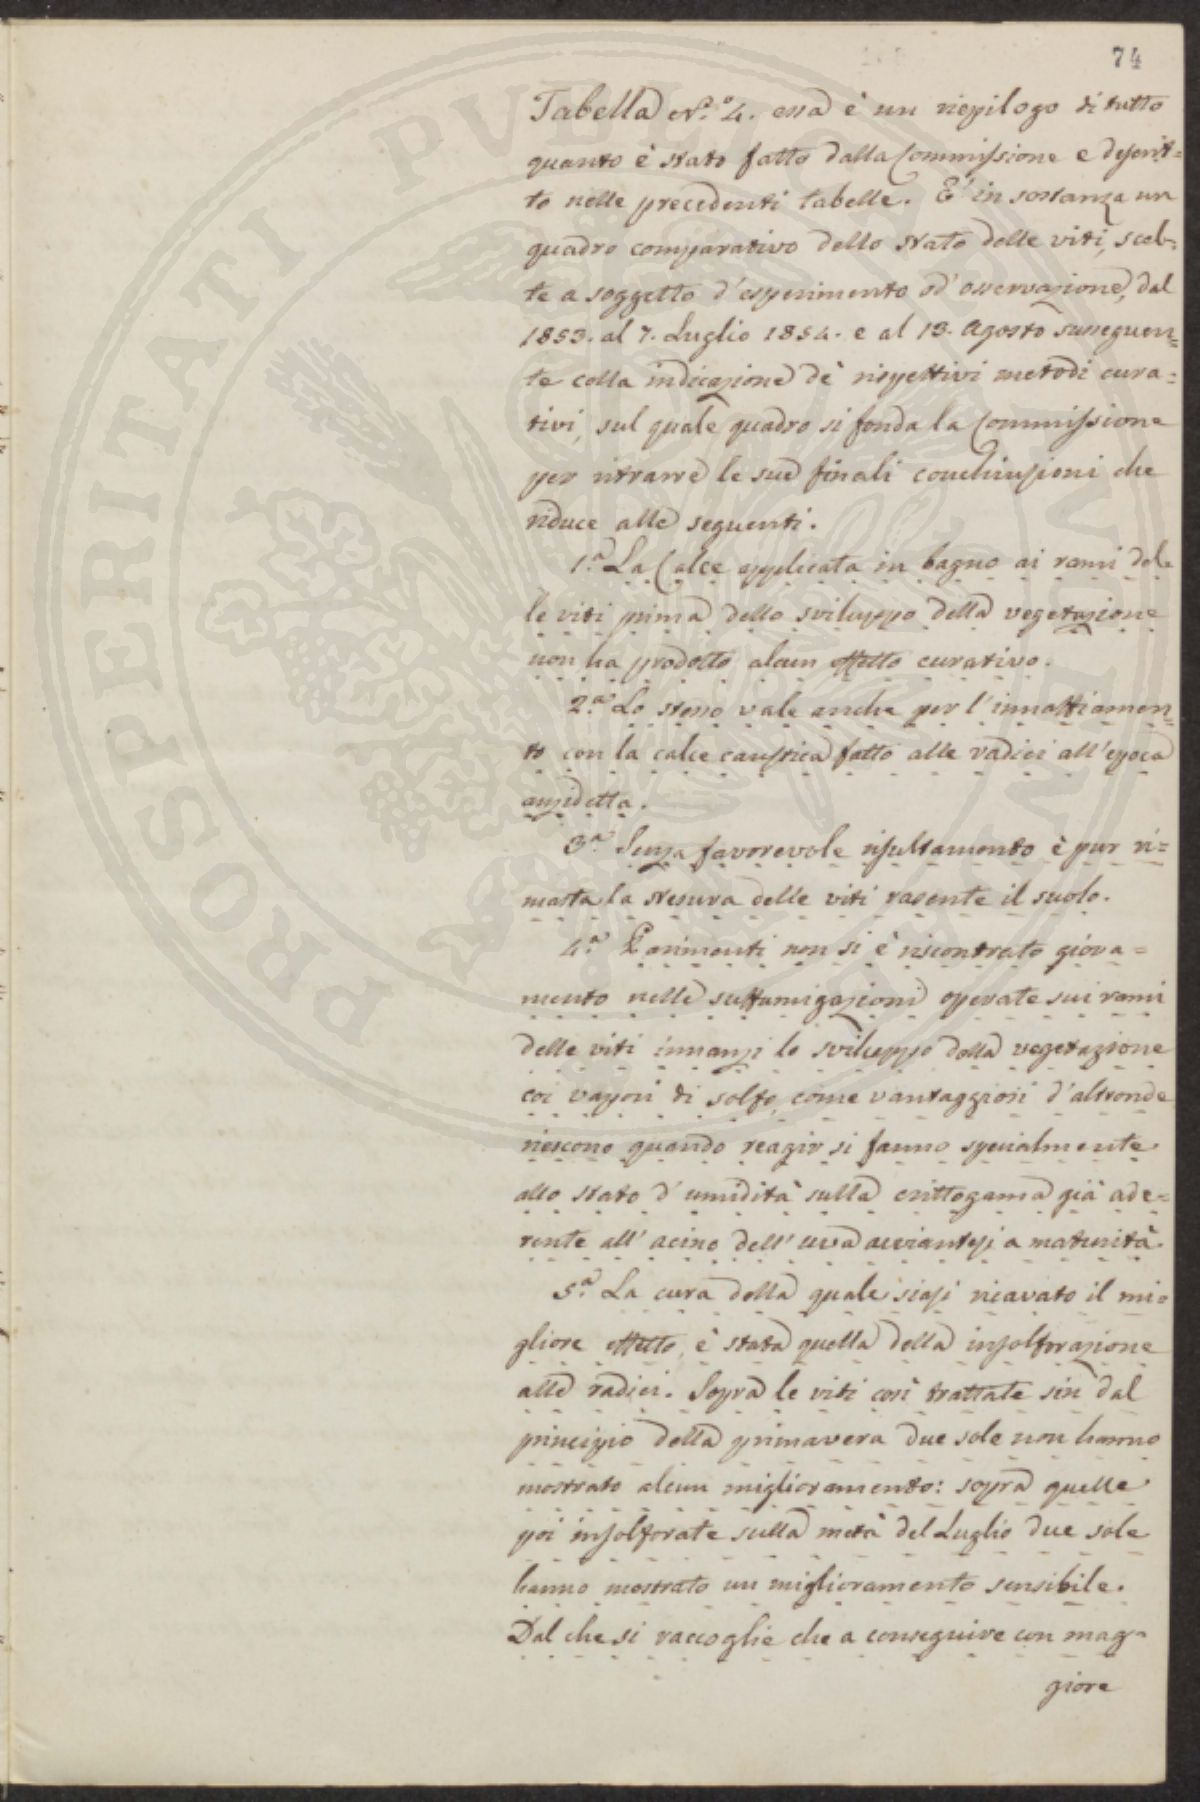 74
Tabella N.º 4. essa è un riepilogo di tutto
quanto è stato fatto dalla Commissione e descrit=
to nelle precedenti tabelle. E' in sostanza un
quadro comparativo dello stato delle viti, scel=
te a soggetto d'esperimento od' osservazione, dal
1853. al 7. Luglio 1854. e al 13. Agosto susseguen=
te colla indicazione de' rispettivi metodi cura=
tivi, sul quale quadro si fonda la Commissione
per ritrarre le sue finali conchiusioni che
riduce alle seguenti.
1.ª La Calce applicata in bagno ai rami del
le viti prima dello sviluppo della vegetazione
non ha prodotto alcun effetto curativo.
2.ª Lo stesso vale anche per l'innaffiamen=
to con la calce caustica fatto alle radici all'epoca
anzidetta.
3.ª Senza favorevole risultamento è pur ri=
masta la stesura delle viti rasente il suolo.
4.ª Parimenti non si è riscontrato giova=
mento nelle suffumigazioni operate sui rami
delle viti innanzi lo sviluppo della vegetazione
coi vapori di solfo, come vantaggiosi d'altronde
riescono quando reagir si fanno specialmente
allo stato d'umidità sulla crittogama già ade=
rente all'acino dell'uva avviantesi a maturità.
5.ª La cura della quale siasi ricavato il mi=
gliore effetto, è stata quella della insolforazione
alle radici. Sopra le viti così trattate sin dal
principio della primavera due sole non hanno
mostrato alcun miglioramento: sopra quelle
poi insolforate sulla metà del Luglio due sole
hanno mostrato un miglioramento sensibile.
Dal che si raccoglie che a conseguire con mag=
giore
PROSPERITATI PVBLICAE